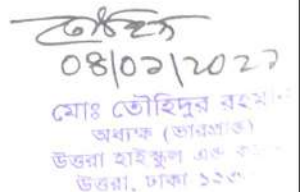 তৌহিদ
08/02/2022
মোঃ তৌহিদুর রহমান
অধ্যক্ষ (ভারপ্রাপ্ত)
উত্তরা হাই স্কুল এন্ড
উত্তরা, ঢাকা